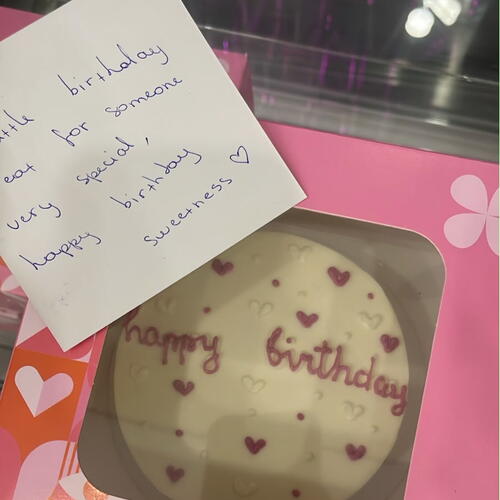 birthday
for someone
very special,
happy birthday
sweetness ♡
happy birthday